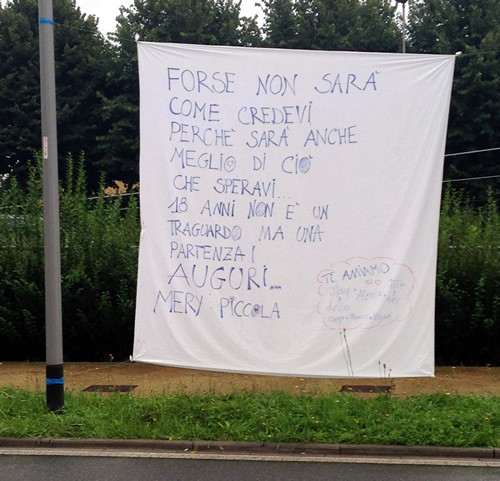 FORSE NON SARÀ
COME CREDEVI
PERCHÈ SARÀ ANCHE
MEGLIO DI CIÒ
CHE SPERAVI...
18 ANNI NON È UN
TRAGUARDO MA UNA
PARTENZA!
AUGURI...
MERY PICCOLA
TE AMIAMO